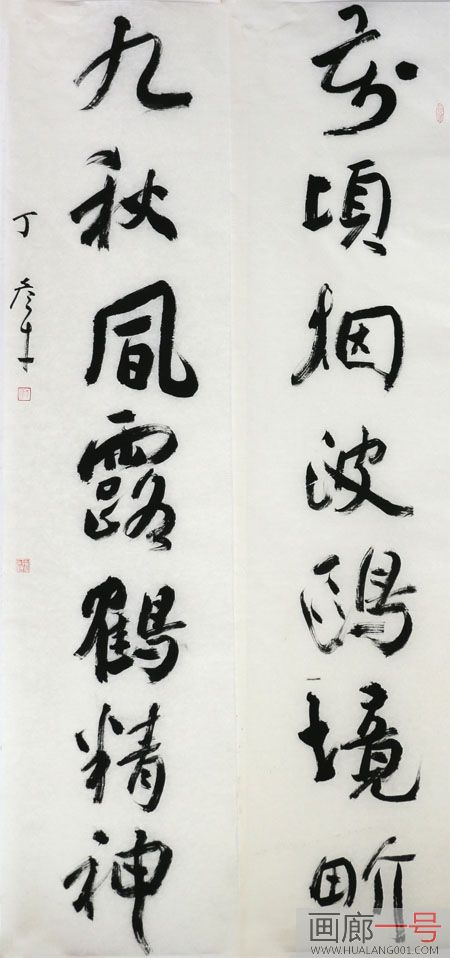 萬頃烟波鷗境畍
九秋風露鶴精神
丁
画廊一号
WWW.HUALANG001.COM